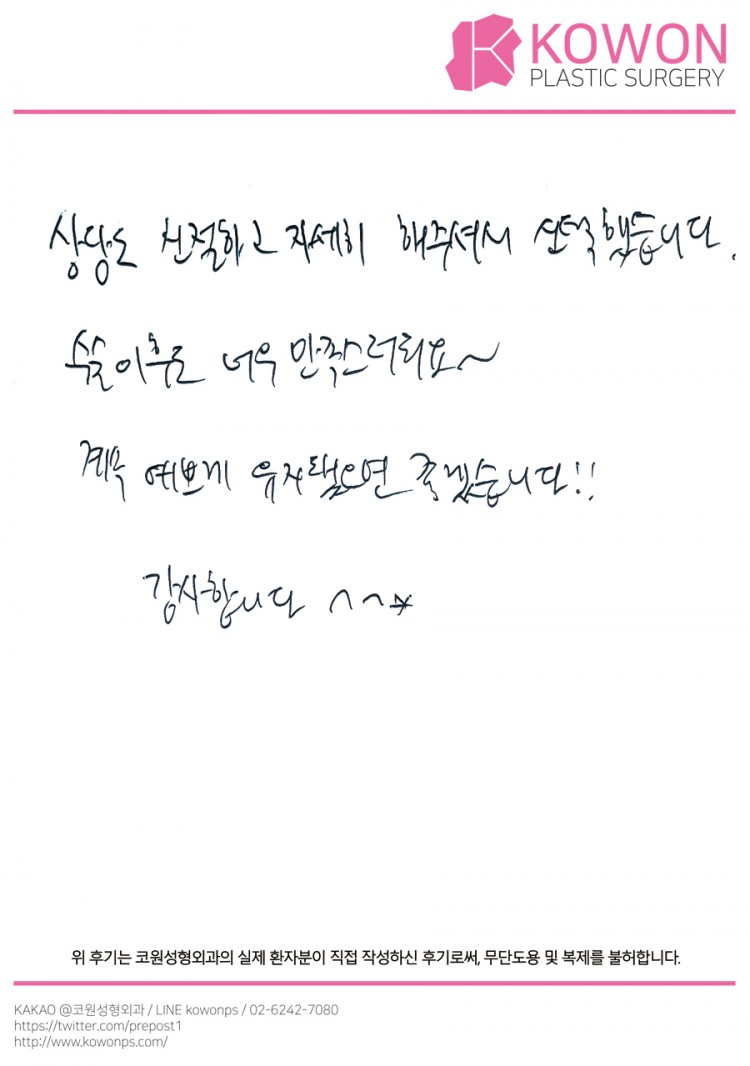 KOWON
PLASTIC SURGERY
상담도 친절하고 자세히 해주셔서 선택했습니다.
수술이후로 너무 만족스러워요~
계속 예쁘게 유지됐으면 좋겠습니다!!
감사합니다 ^^*
위 후기는 코원성형외과의 실제 환자분이 직접 작성하신 후기로써, 무단도용 및 복제를 불허합니다.
KAKAO @코원성형외과 / LINE kowonps / 02-6242-7080
https://twitter.com/prepost1
http://www.kowonps.com/